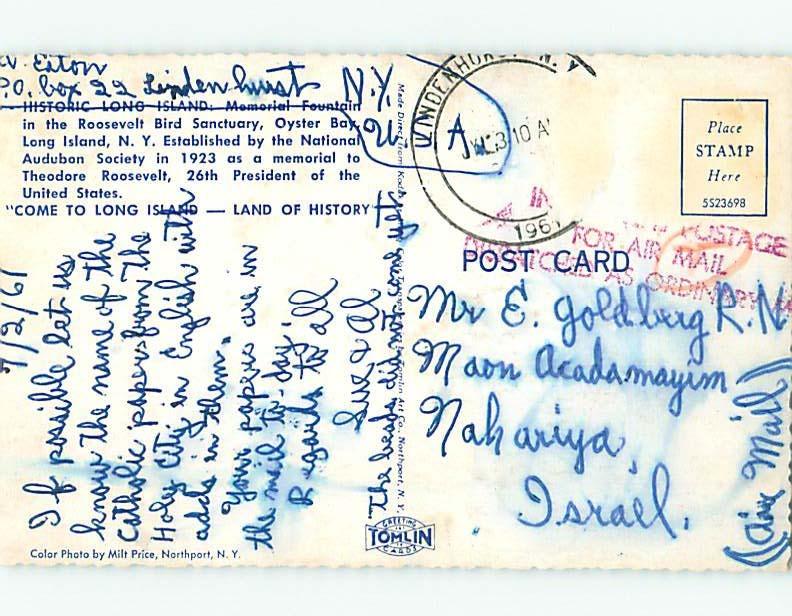 Eaton
P.O. box 22 Lindenhurst N.Y.
U. A
HISTORIC LONG ISLAND. Memorial Fountain
in the Roosevelt Bird Sanctuary, Oyster Bay,
Long Island, N. Y. Established by the National
Audubon Society in 1923 as a memorial to
Theodore Roosevelt, 26th President of the
United States.
"COME TO LONG ISLAND — LAND OF HISTORY"
7/2/61
If possible let us
know the name of the
Catholic papers from the
Holy City in English with
adds in them.
Your papers are in
the mail to-day.
Regards to all
Sue & Al
The beads did not come yet
Color Photo by Milt Price, Northport, N. Y.
Made Direct from Koda
Tomlin Art Co., Northport, N. Y.
GREETING
TOMLIN
CARDS
LINDENHURST N. Y.
JUL 3 10 A
196
Place
STAMP
Here
5S23698
IN
POSTAGE
FOR AIR MAIL
AS ORDINARY
POST CARD
Mr E. Goldberg R.N
Maon Acadamayim
Nahariya,
Israel.
(Air Mail)